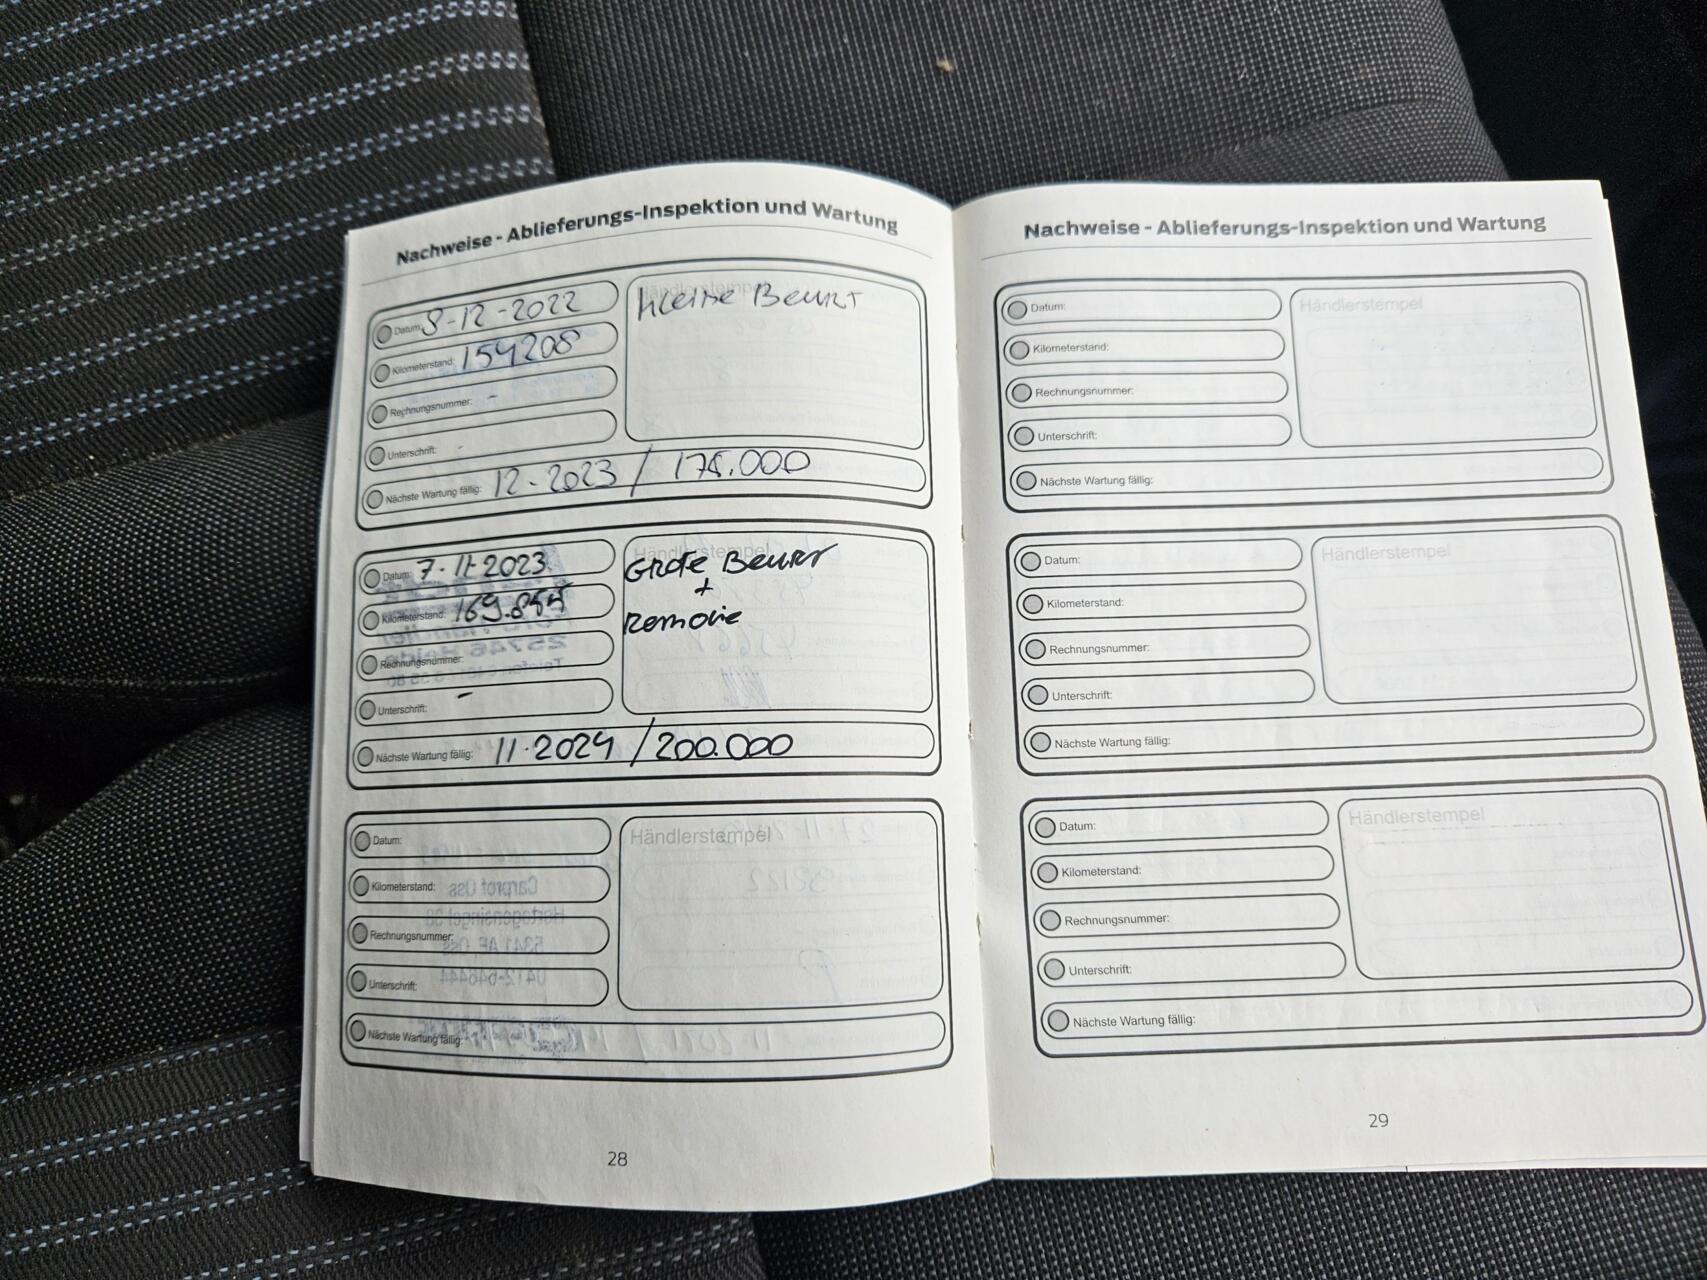 Nachweise - Ablieferungs-Inspektion und Wartung
Datum: 8-12-2022
Kilometerstand: 154208
Rechnungsnummer: -
Unterschrift: -
Händlerstempel
Kleine Beurt
Nächste Wartung fällig: 12-2023 / 174.000
Datum: 7-11-2023
Kilometerstand:
Rechnungsnummer:
Unterschrift: -
Händlerstempel
Grote Beurt
+
Remolie
Nächste Wartung fällig: 11-2024 / 200.000
Datum:
Kilometerstand:
Rechnungsnummer:
Unterschrift:
Händlerstempel
Nächste Wartung fällig:
28
Nachweise - Ablieferungs-Inspektion und Wartung
Datum:
Kilometerstand:
Rechnungsnummer:
Unterschrift:
Händlerstempel
Nächste Wartung fällig:
Datum:
Kilometerstand:
Rechnungsnummer:
Unterschrift:
Händlerstempel
Nächste Wartung fällig:
Datum:
Kilometerstand:
Rechnungsnummer:
Unterschrift:
Händlerstempel
Nächste Wartung fällig:
29